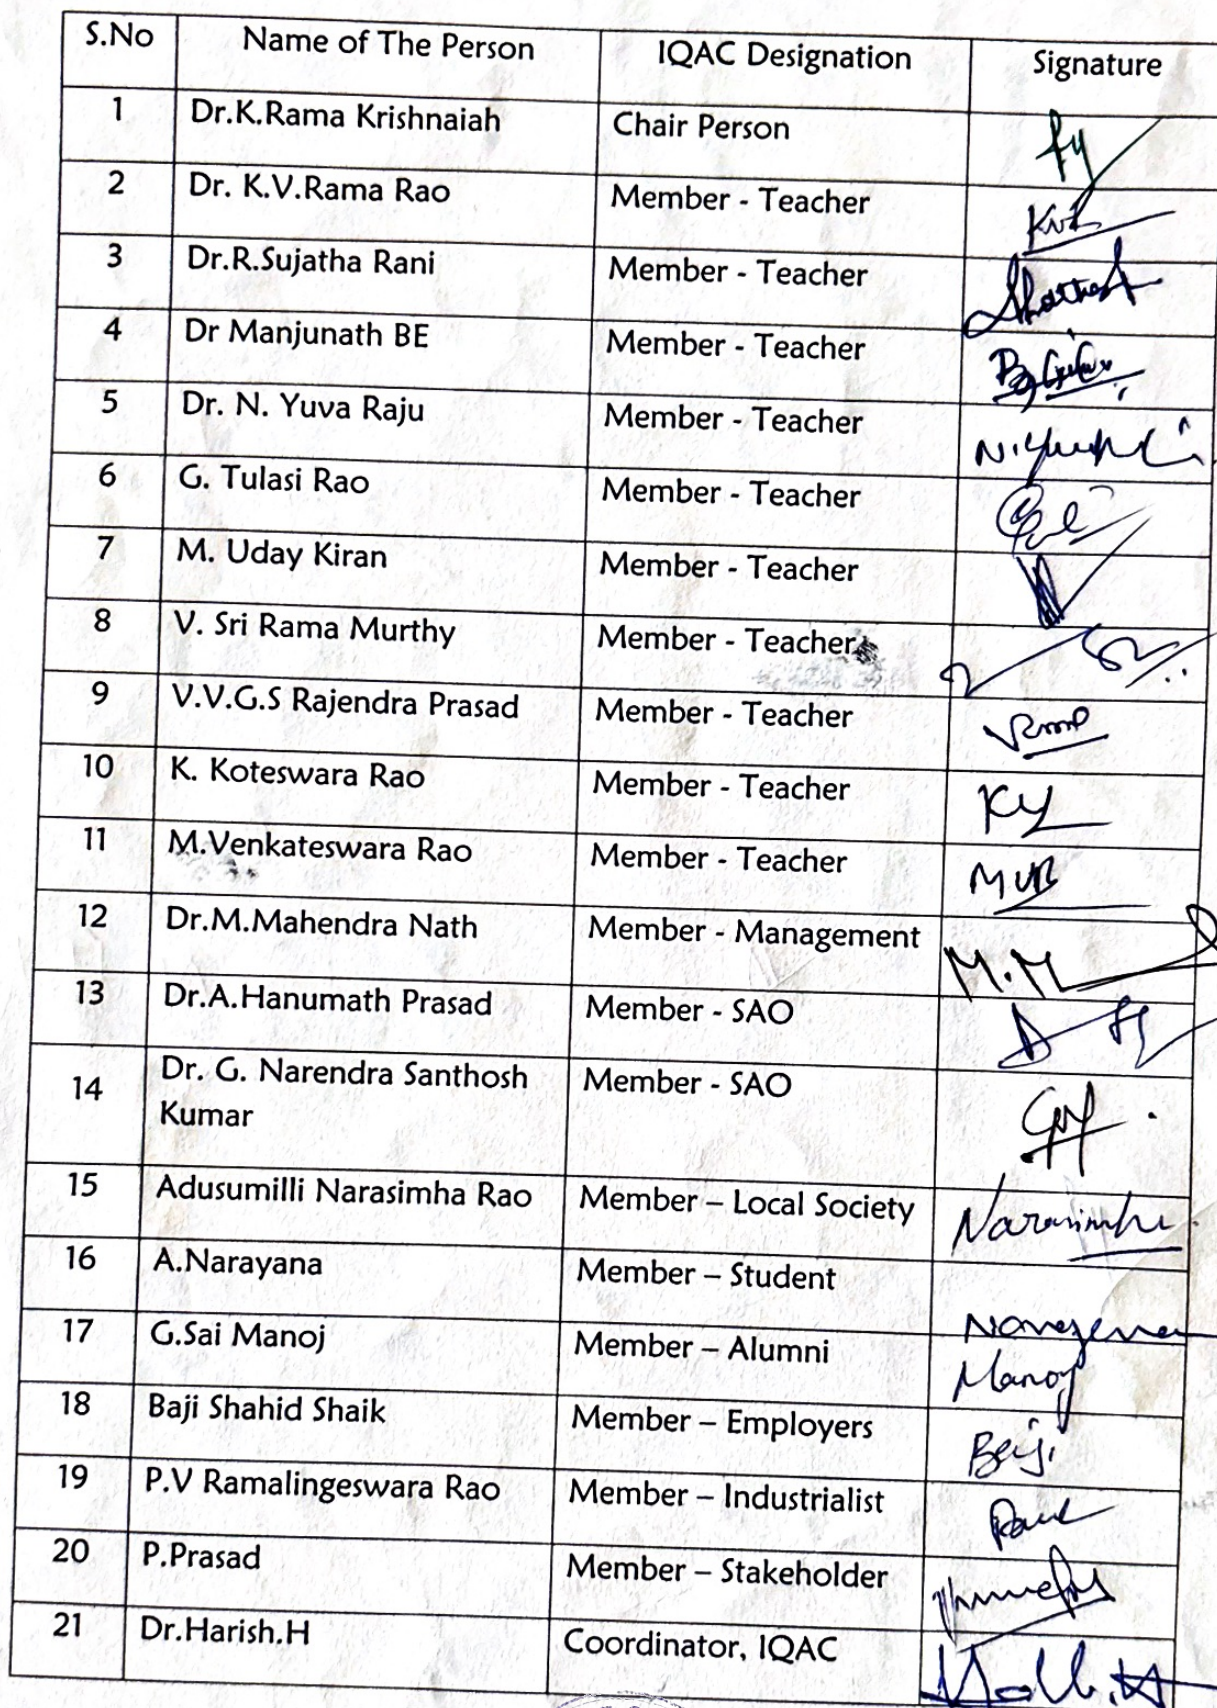 S.No Name of The Person IQAC Designation Signature
1 Dr.K.Rama Krishnaiah Chair Person
2 Dr. K.V.Rama Rao Member - Teacher
3 Dr.R.Sujatha Rani Member - Teacher
4 Dr Manjunath BE Member - Teacher
5 Dr. N. Yuva Raju Member - Teacher
6 G. Tulasi Rao Member - Teacher
7 M. Uday Kiran Member - Teacher
8 V. Sri Rama Murthy Member - Teacher
9 V.V.G.S Rajendra Prasad Member - Teacher
10 K. Koteswara Rao Member - Teacher
11 M.Venkateswara Rao Member - Teacher MVR
12 Dr.M.Mahendra Nath Member - Management M.M
13 Dr.A.Hanumath Prasad Member - SAO
14 Dr. G. Narendra Santhosh Member - SAO
Kumar
15 Adusumilli Narasimha Rao Member – Local Society Narasimha
16 A.Narayana Member – Student
17 G.Sai Manoj Member – Alumni Manoj
18 Baji Shahid Shaik Member – Employers Baji
19 P.V Ramalingeswara Rao Member – Industrialist
20 P.Prasad Member – Stakeholder
21 Dr.Harish.H Coordinator, IQAC